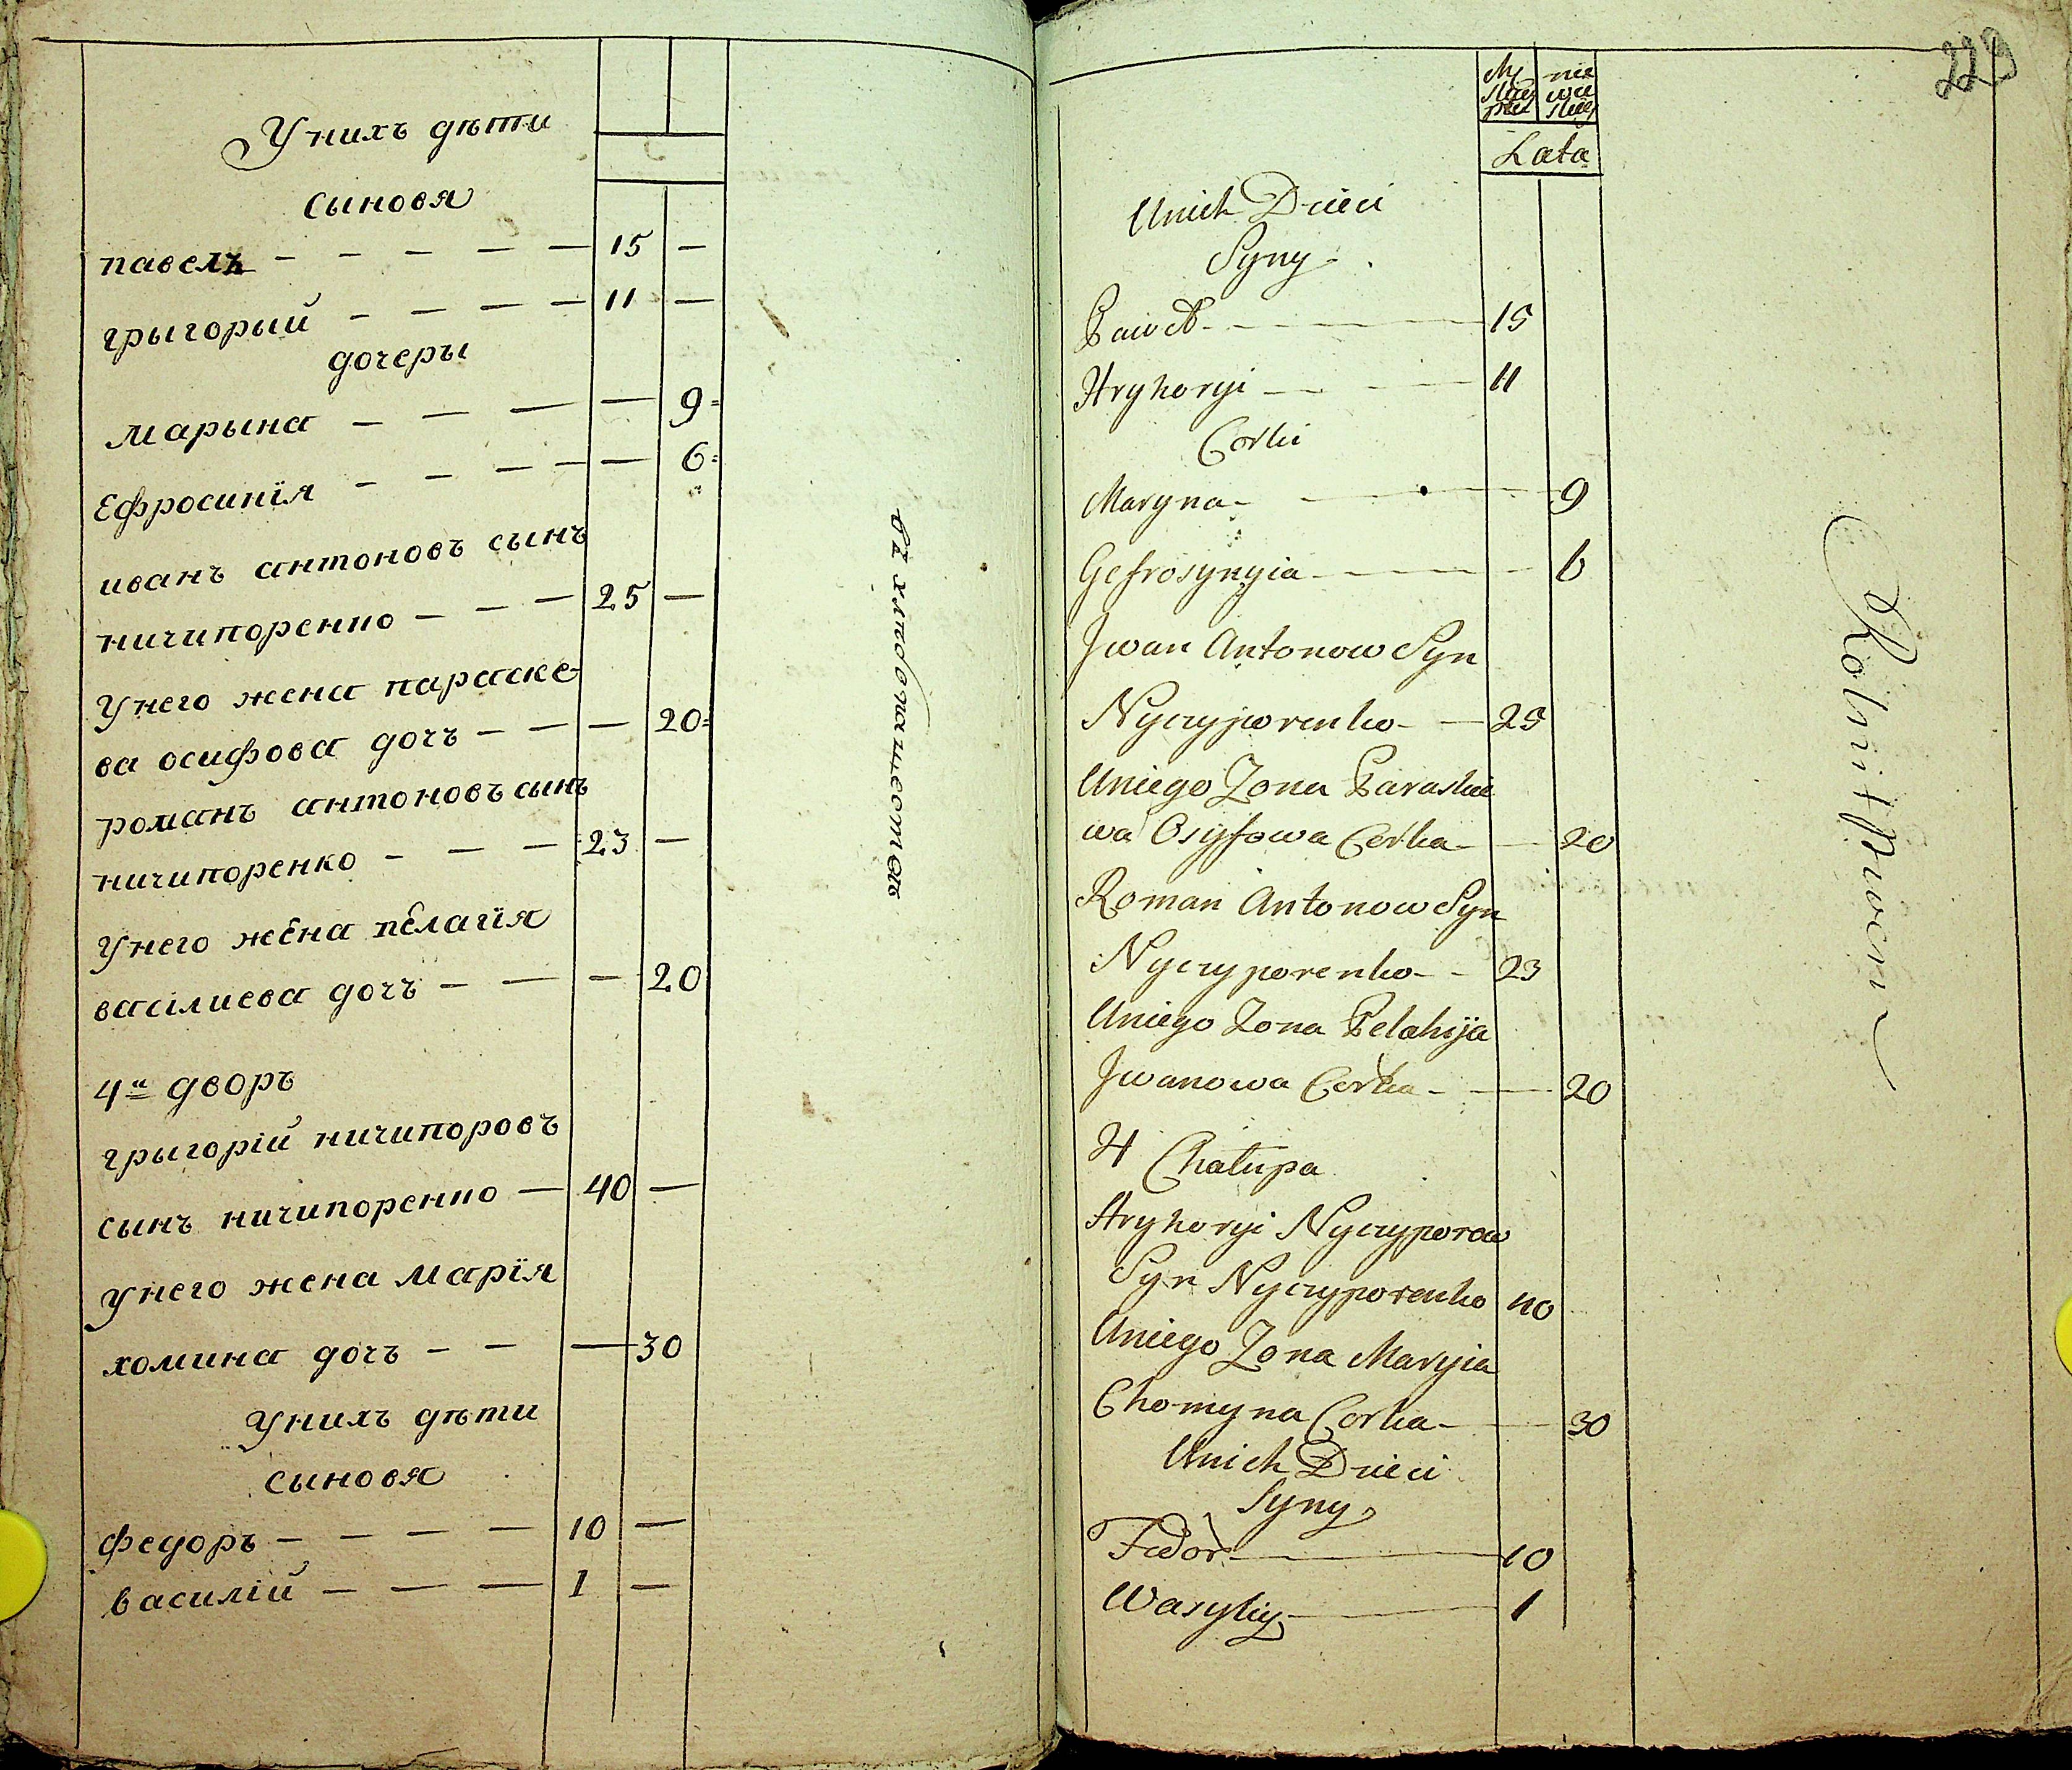 Унихъ дѣти
сыновя
павелъ — — — — — 15 —
грыгорый — — — — 11 —
дочеры
марына — — — — 9
Ефросинїя — — — — — 6
иванъ антоновъ сынъ
ничипоренко — — — 25 —
Унего жена параске-
ва осифова дочъ — — — 20
романъ антоновъ сынъ
ничипоренко — — — 23 —
Унего жена пелагїя
василиева дочъ — — — 20
4й дворъ
грыгорій ничипоровъ
сынъ ничипоренко — 40 —
Унего жена Марїя
хомина дочъ — — — 30
Унихъ дѣти
сыновя
федоръ — — — — 10 —
василій — — — 1 —
въ хлѣбопашествѣ
229
Lata
Unich Dzieci
Syny
Paweł 15
Hryhoryi 11
Corki
Maryna 9
Gefrosynyia 6
Jwan Antonow Syn
Nyczyporenko 25
Uniego Zona Paraskie
wa Osyfowa Corka 20
Roman Antonow Syn
Nyczyporenko 23
Uniego Zona Pelahija
Jwanowa Corka 20
4 Chałupa
Hryhoryi Nyczyporow
Syn Nyczyporenko 40
Uniego Zona Maryia
Chomyna Corka 30
Unich Dzieci
Syny
Fedor 10
Wasyliy 1